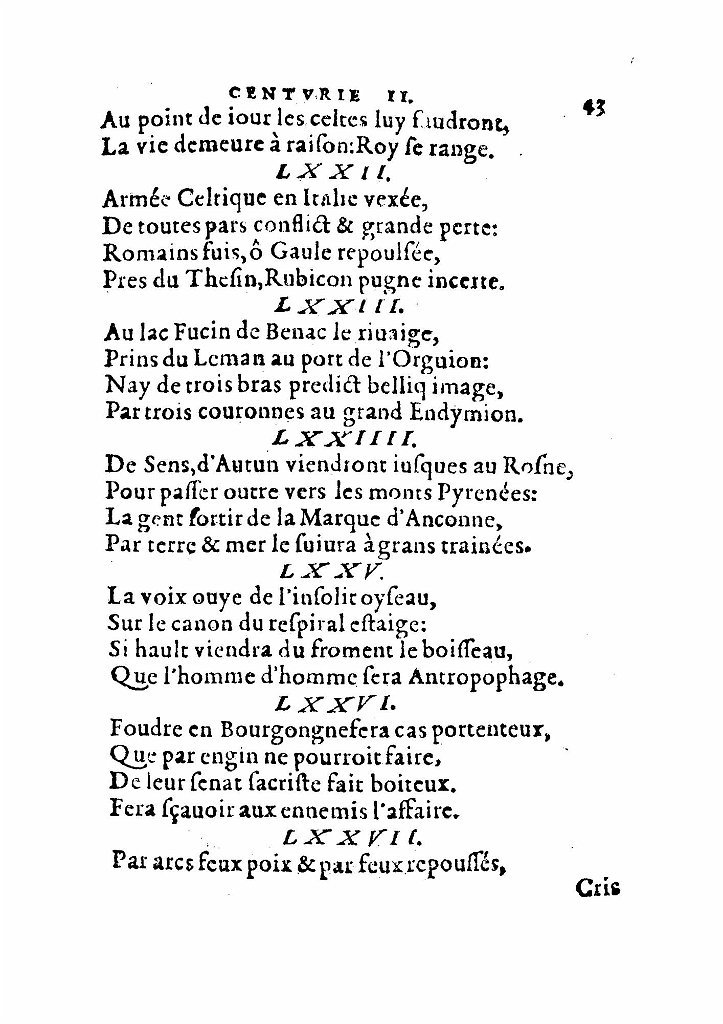 CENTVRIE II.
43
Au point de iour les celtes luy faudront,
La vie demeure à raiſon:Roy ſe range.
LXXII.
Armée Celtique en Italie vexée,
De toutes pars conflict & grande perte:
Romains fuis, ô Gaule repoulſée,
Pres du Theſin,Rubicon pugne incerte.
LXXIII.
Au lac Fucin de Benac le riuaige,
Prins du Leman au port de l'Orguion:
Nay de trois bras predict belliq image,
Par trois couronnes au grand Endymion.
LXXIIII.
De Sens,d'Autun viendront iuſques au Roſne,
Pour paſſer outre vers les monts Pyrenées:
La gent ſortir de la Marque d'Anconne,
Par terre & mer le ſuiura à grans trainées.
LXXV.
La voix ouye de l'inſolit oyſeau,
Sur le canon du reſpiral eſtaige:
Si hault viendra du froment le boiſſeau,
Que l'homme d'homme ſera Antropophage.
LXXVI.
Foudre en Bourgongnefera cas portenteux,
Que par engin ne pourroit faire,
De leur ſenat ſacriſte fait boiteux.
Fera ſçauoir aux ennemis l'affaire.
LXXVII.
Par arcs feux poix & par feux repouſſés,
Cris